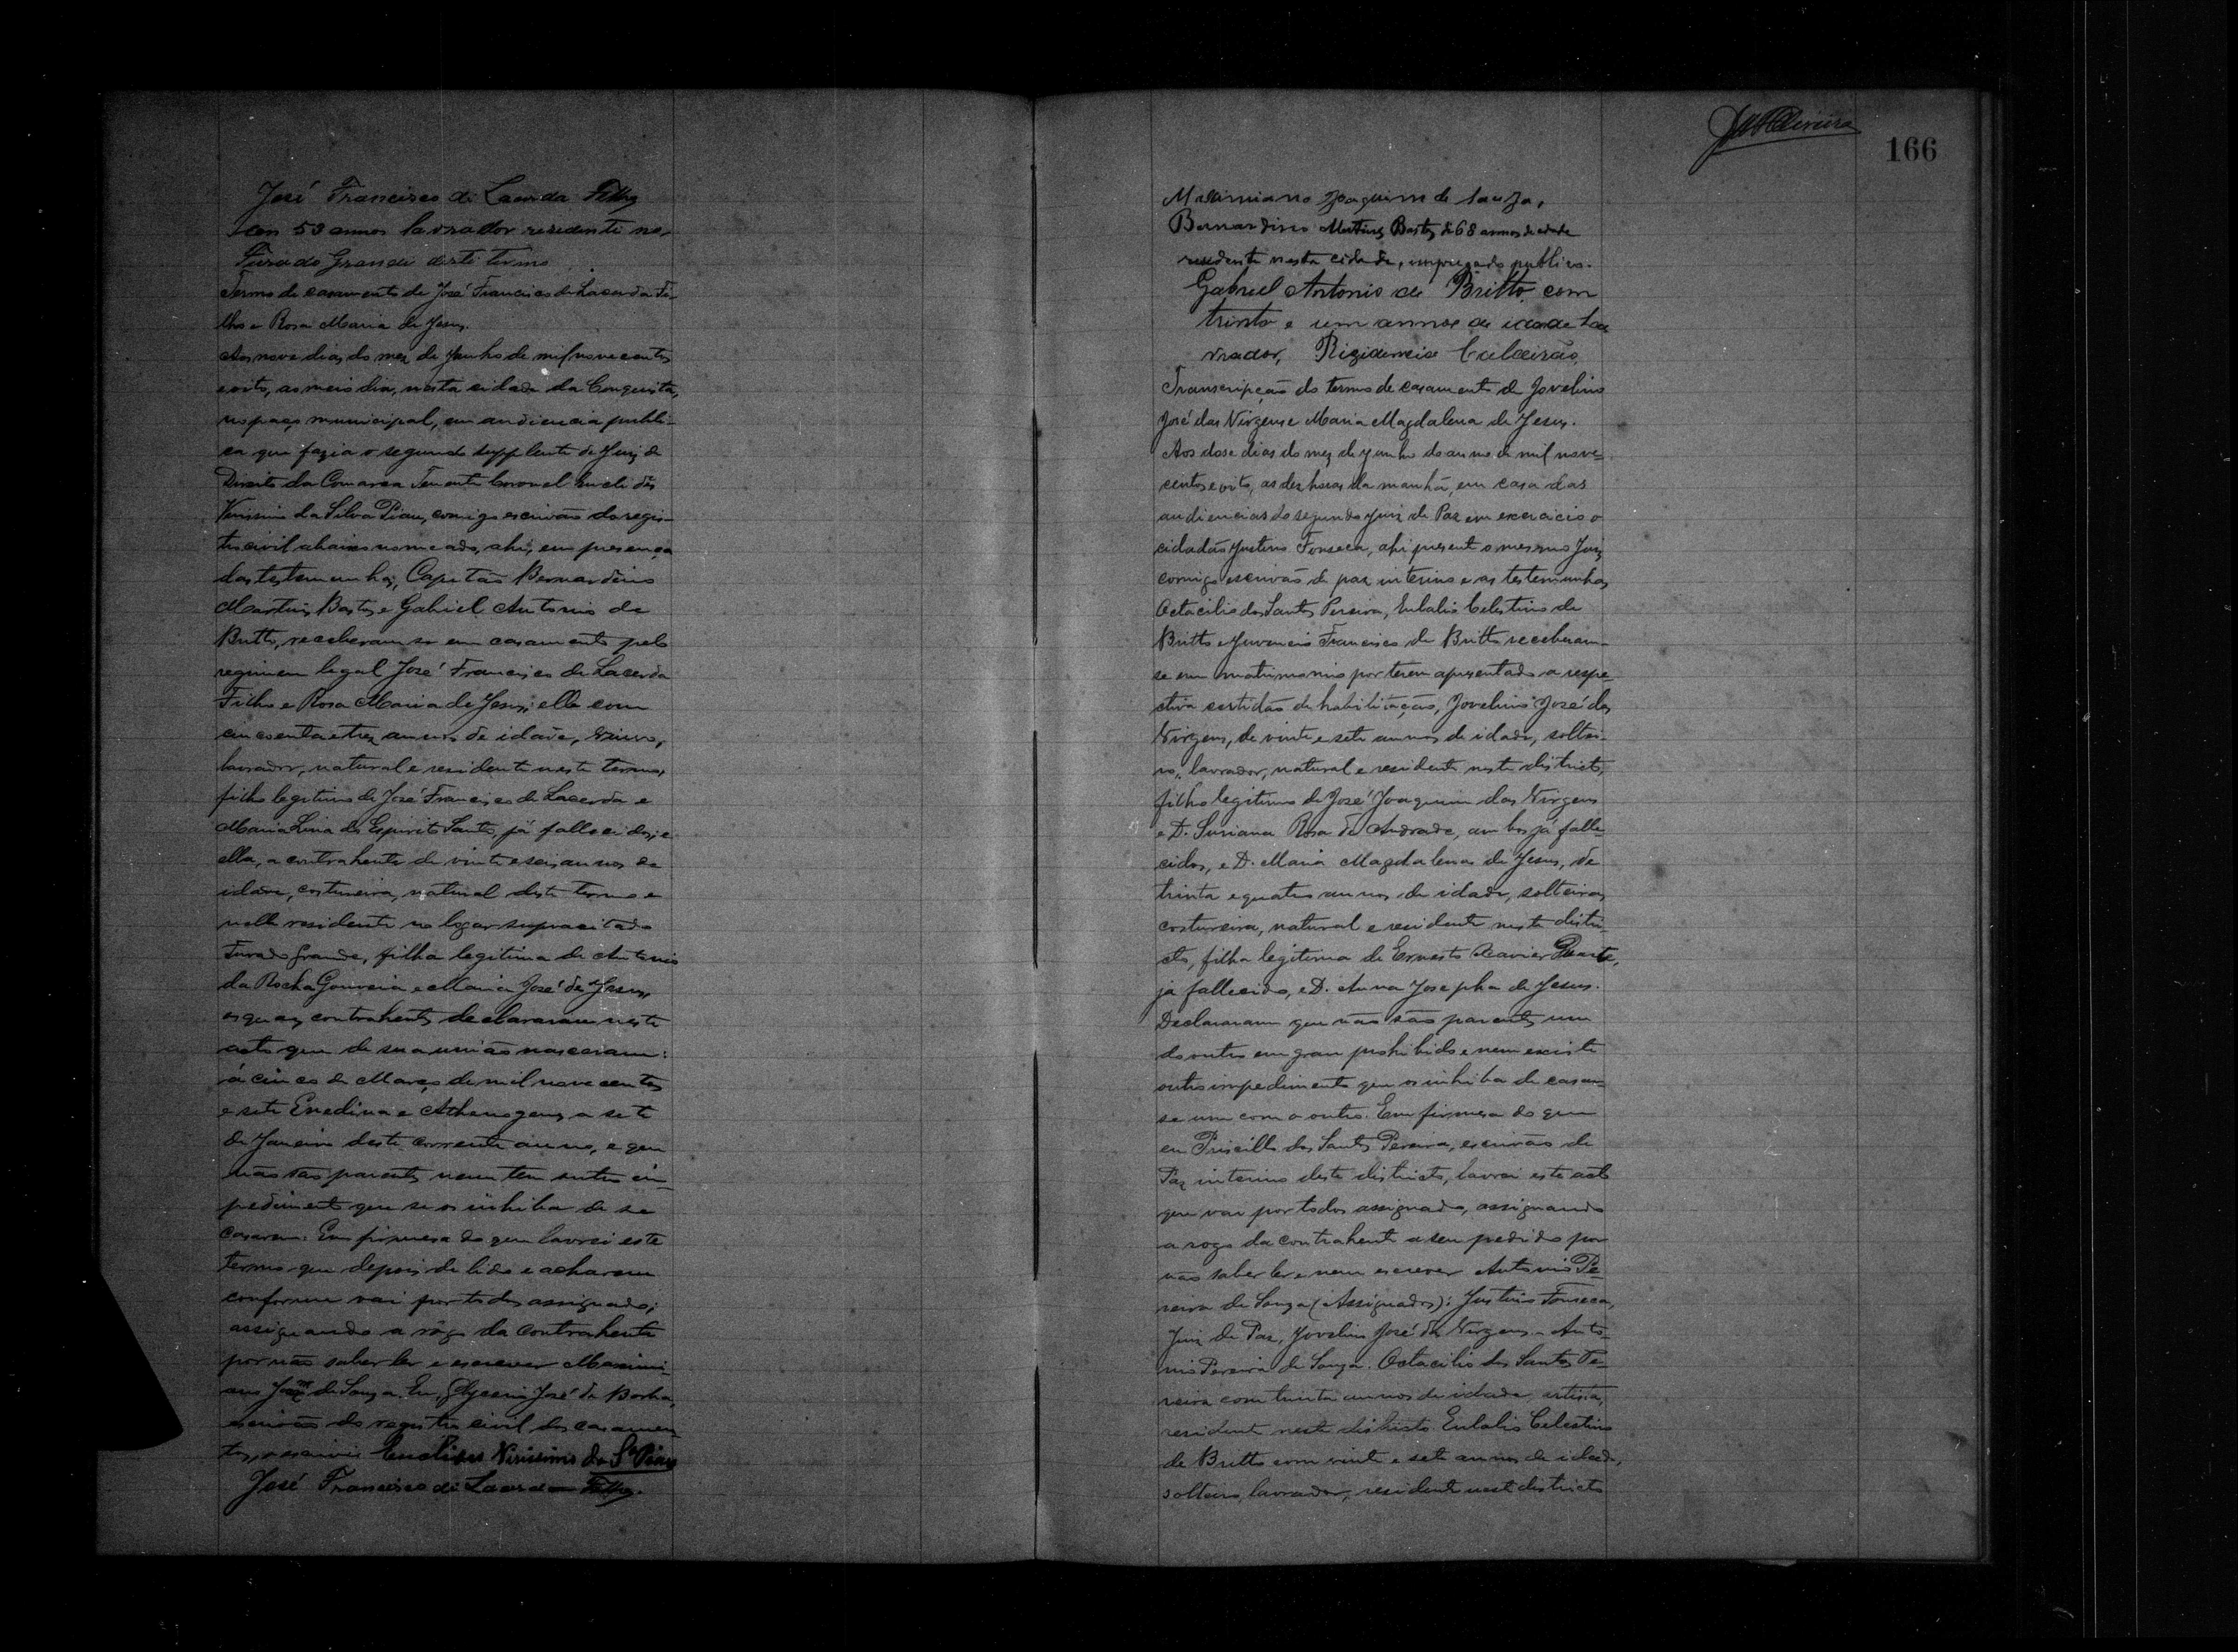 José Francisco de Lacerda Filho
com 53 annos lavrador residente no
Furado Grande deste termo
Termo de casamento de José Francisco de Lacerda Fi-
lho e Rosa Maria de Jesus.
Aos nove dias do mez de Junho de mil novecentos
e oito, ao meio dia, nesta cidade da Conquista,
no paço municipal, em audiencia publi-
ca que fazia o segundo supplente do Juiz de
Direito da Comarca Tenente Coronel Euclides
Verissimo da Silva Piau, comigo escrivão do regis-
tro civil abaixo nomeado, ahi, em presença
das testemunhas, Capitão Bernardino
Martins Bastos e Gabriel Antonio de
Britto, receberam-se em casamento pelo
regimen legal José Francisco de Lacerda
Filho e Rosa Maria de Jesus; elle com
cincoenta e trez annos de idade, viuvo,
lavrador, natural e residente neste termo,
filho legitimo de José Francisco de Lacerda e
Maria Lina do Espirito Santo, já fallecidos; e
ella, a contrahente de vinte e seis annos de
idade, costureira, natural deste termo e
nelle residente no logar supracitado
Furado Grande, filha legitima de Antonio
da Rocha Gouveia e Maria José de Jesus,
os quaes contrahentes declararam neste
acto que de sua união nasceram:
á cinco de Março de mil novecentos
e sete Enedina e Athenogenes a sete
de Janeiro deste corrente anno, e que
não são parentes nem tem outro im-
pedimento que se os inhiba de se
casarem. Em firmeza do que lavrei este
termo que depois de lido e acharem
conforme vai por todos assignado;
assignando a rôgo da contrahente
por não saber ler e escrever Maximi-
ano Joaqm de Souza. Eu, Glycerio José da Rocha,
escrivão do registro civil dos casamen-
tos, o escrivi Euclides Virissimo da Sa Piau
José Francisco de Lacerda Filho.
JMOliveira
166
Maximiano Joaquim de Souza,
Bernardino Martins Bastos de 68 annos de edade
residente nesta cidade, empregado publico.
Gabriel Antonio de Britto com
trinta e um annos de idade lav
vrador, Rizidencia Caldeirão
Transcripção do termo de casamento de Jovelino
José das Virgens e Maria Magdalena de Jesus.
Aos dose dias do mez de Junho do anno de mil nove-
centos e oito, as dez horas da manhã, em casa das
audiencias do segundo Juiz de Paz em exercicio o
cidadão Justino Fonseca, ahi presente o mesmo Juiz
comigo escrivão de paz interino e as testemunhas
Octacilio dos Santos Pereira, Eulalio Celestino de
Britto e Juvencio Francisco de Britto receberam-
se em matrimonio por terem apresentado a respe-
ctiva certidão de habilitação, Jovelino José das
Virgens, de vinte e sete annos de idade, soltei-
ro, lavrador, natural e residente neste districto,
filho legitimo de José Joaquim das Virgens
e D. Suriana Rosa de Andrade, ambos já falle-
cidos, e D. Maria Magdalena de Jesus, de
trinta e quatro annos de idade, solteira,
costureira, natural e residente neste distri-
cto, filha legitima de Ernesto Xavier Duarte,
já fallecido, e D. Anna Josepha de Jesus.
Declararam que não são parentes um
do outro em grau prohibido e nem existe
outro impedimento que os inhiba de casar-
se um com o outro. Em firmesa do que
eu Priscillo dos Santos Pereira, escrivão de
Paz interino deste districto, lavrei este acto
que vai por todos assignado, assignando
a rogo da contrahente a seu pedido por
não saber ler e nem escrever Antonio Pe-
reira de Souza (Assignados): Justino Fonseca,
Juiz de Paz, Jovelino José das Virgens. Anto-
nio Pereira de Souza. Octacilio dos Santos Pe-
reira com trinta annos de idade, artista,
residente neste districto. Eulalio Celestino
de Britto com vinte e sete annos de idade,
solteiro, lavrador, residente neste districto